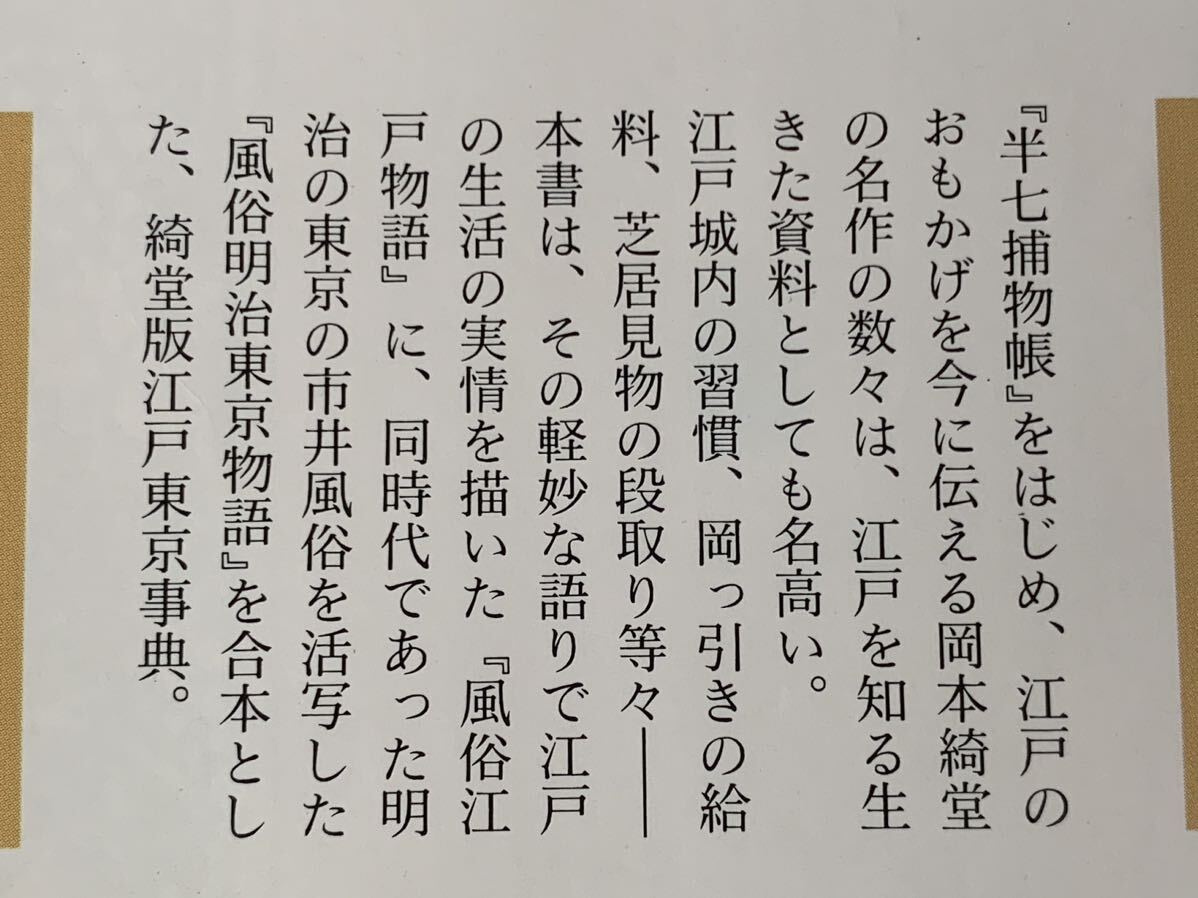 『半七捕物帳』をはじめ、江戸の
おもかげを今に伝える岡本綺堂
の名作の数々は、江戸を知る生
きた資料としても名高い。
江戸城内の習慣、岡っ引きの給
料、芝居見物の段取り等々――
本書は、その軽妙な語りで江戸
の生活の実情を描いた『風俗江
戸物語』に、同時代であった明
治の東京の市井風俗を活写した
『風俗明治東京物語』を合本とし
た、綺堂版江戸東京事典。